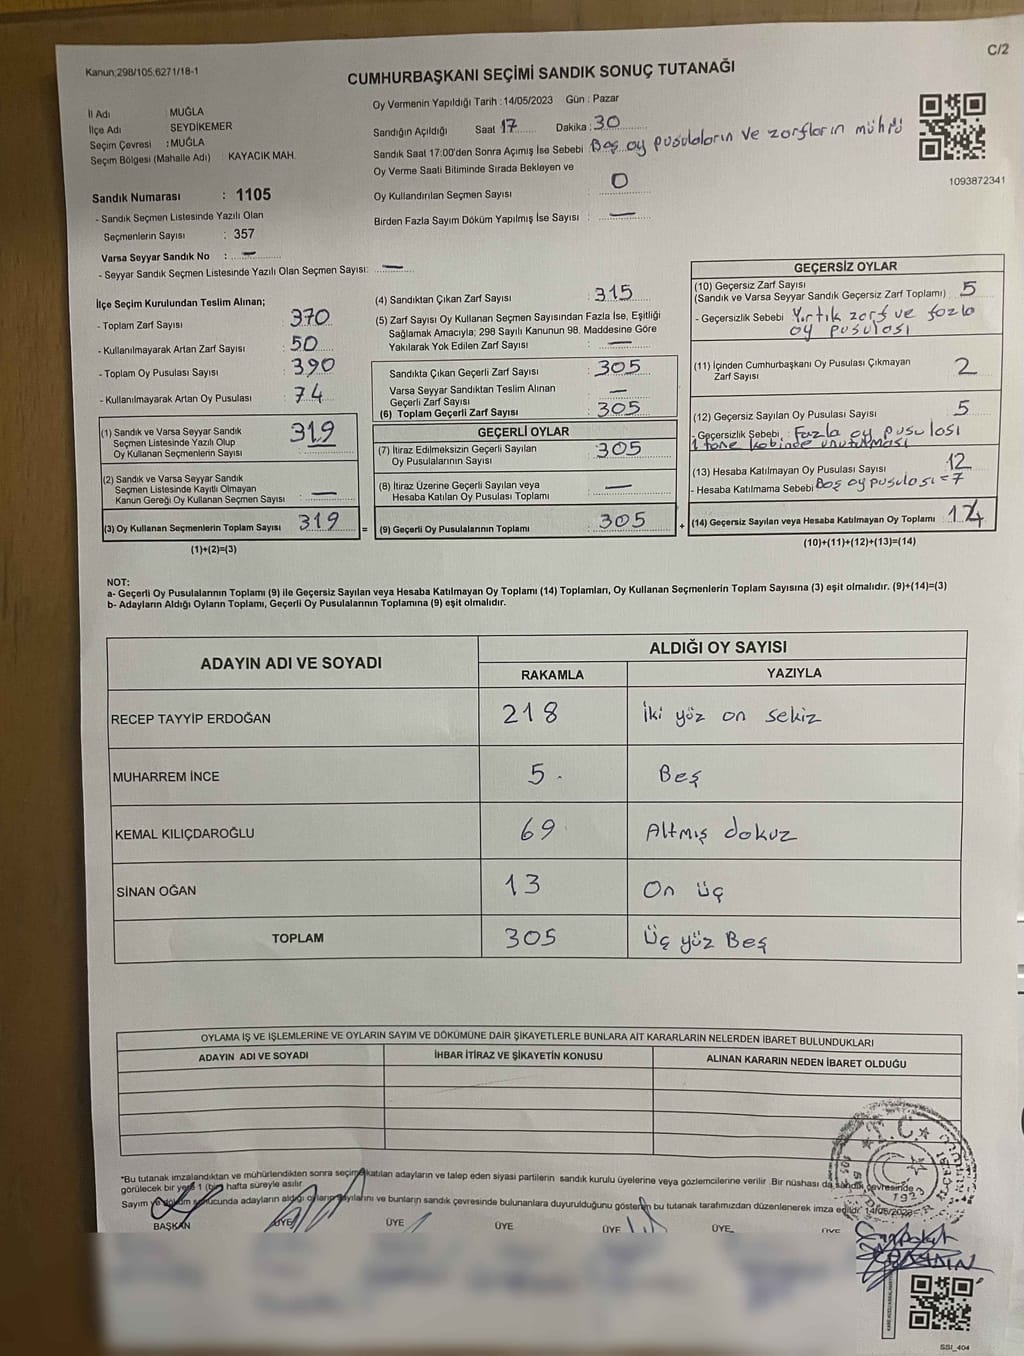 C/2
Kanun;298/105.6271/18-1
CUMHURBAŞKANI SEÇİMİ SANDIK SONUÇ TUTANAĞI
İl Adı : MUĞLA
İlçe Adı : SEYDİKEMER
Seçim Çevresi : MUĞLA
Seçim Bölgesi (Mahalle Adı) : KAYACIK MAH.
Oy Vermenin Yapıldığı Tarih : 14/05/2023 Gün : Pazar
Sandığın Açıldığı Saat 17 Dakika : 30
Sandık Saat 17:00'den Sonra Açımış İse Sebebi Boş oy pusulaların ve zorfların mührü
Oy Verme Saati Bitiminde Sırada Bekleyen ve
Oy Kullandırılan Seçmen Sayısı : 0
Birden Fazla Sayım Döküm Yapılmış İse Sayısı : —
1093872341
Sandık Numarası : 1105
- Sandık Seçmen Listesinde Yazılı Olan
Seçmenlerin Sayısı : 357
Varsa Seyyar Sandık No : —
- Seyyar Sandık Seçmen Listesinde Yazılı Olan Seçmen Sayısı: —
İlçe Seçim Kurulundan Teslim Alınan;
- Toplam Zarf Sayısı : 370
- Kullanılmayarak Artan Zarf Sayısı : 50
- Toplam Oy Pusulası Sayısı : 390
- Kullanılmayarak Artan Oy Pusulası : 74
(1) Sandık ve Varsa Seyyar Sandık
Seçmen Listesinde Yazılı Olup
Oy Kullanan Seçmenlerin Sayısı : 319
(2) Sandık ve Varsa Seyyar Sandık
Seçmen Listesinde Kayıtlı Olmayan
Kanun Gereği Oy Kullanan Seçmen Sayısı : —
(3) Oy Kullanan Seçmenlerin Toplam Sayısı : 319
(1)+(2)=(3)
(4) Sandıktan Çıkan Zarf Sayısı : 315
(5) Zarf Sayısı Oy Kullanan Seçmen Sayısından Fazla İse, Eşitliği
Sağlamak Amacıyla; 298 Sayılı Kanunun 98. Maddesine Göre
Yakılarak Yok Edilen Zarf Sayısı : —
Sandıkta Çıkan Geçerli Zarf Sayısı : 305
Varsa Seyyar Sandıktan Teslim Alınan
Geçerli Zarf Sayısı : —
(6) Toplam Geçerli Zarf Sayısı : 305
GEÇERLİ OYLAR
(7) İtiraz Edilmeksizin Geçerli Sayılan
Oy Pusulalarının Sayısı : 305
(8) İtiraz Üzerine Geçerli Sayılan veya
Hesaba Katılan Oy Pusulası Toplamı : —
= (9) Geçerli Oy Pusulalarının Toplamı : 305 +
GEÇERSİZ OYLAR
(10) Geçersiz Zarf Sayısı
(Sandık ve Varsa Seyyar Sandık Geçersiz Zarf Toplamı) : 5
- Geçersizlik Sebebi : Yırtık zorf ve fozlo
oy pusulosı
(11) İçinden Cumhurbaşkanı Oy Pusulası Çıkmayan
Zarf Sayısı 2
(12) Geçersiz Sayılan Oy Pusulası Sayısı : 5
- Geçersizlik Sebebi : Fazla oy pusulosı
1 tane kabinde unutulması
(13) Hesaba Katılmayan Oy Pusulası Sayısı : 12
- Hesaba Katılmama Sebebi Boş oy pusulosı = 7
(14) Geçersiz Sayılan veya Hesaba Katılmayan Oy Toplamı :
(10)+(11)+(12)+(13)=(14)
NOT:
a- Geçerli Oy Pusulalarının Toplamı (9) ile Geçersiz Sayılan veya Hesaba Katılmayan Oy Toplamı (14) Toplamları, Oy Kullanan Seçmenlerin Toplam Sayısına (3) eşit olmalıdır. (9)+(14)=(3)
b- Adayların Aldığı Oyların Toplamı, Geçerli Oy Pusulalarının Toplamına (9) eşit olmalıdır.
ADAYIN ADI VE SOYADI ALDIĞI OY SAYISI
RAKAMLA YAZIYLA
RECEP TAYYİP ERDOĞAN 218 İki yüz on sekiz
MUHARREM İNCE 5 Beş
KEMAL KILIÇDAROĞLU 69 Altmış dokuz
SİNAN OĞAN 13 On üç
TOPLAM 305 Üç yüz Beş
OYLAMA İŞ VE İŞLEMLERİNE VE OYLARIN SAYIM VE DÖKÜMÜNE DAİR ŞİKAYETLERLE BUNLARA AİT KARARLARIN NELERDEN İBARET BULUNDUKLARI
ADAYIN ADI VE SOYADI İHBAR İTİRAZ VE ŞİKAYETİN KONUSU ALINAN KARARIN NEDEN İBARET OLDUĞU
*Bu tutanak imzalandıktan ve mühürlendikten sonra seçime katılan adayların ve talep eden siyasi partilerin sandık kurulu üyelerine veya gözlemcilerine verilir. Bir nüshası da sandık çevresinde
görülecek bir yere 1 (bir) hafta süreyle asılır.
Sayım ve döküm sonucunda adayların aldığı oyların sayılarını ve bunların sandık çevresinde bulunanlara duyurulduğunu gösteren bu tutanak tarafımızdan düzenlenerek imza edildi. 14/05/2023
BAŞKAN ÜYE ÜYE ÜYE ÜYE ÜYE ÜYE
T.C.
1923
SSI_404